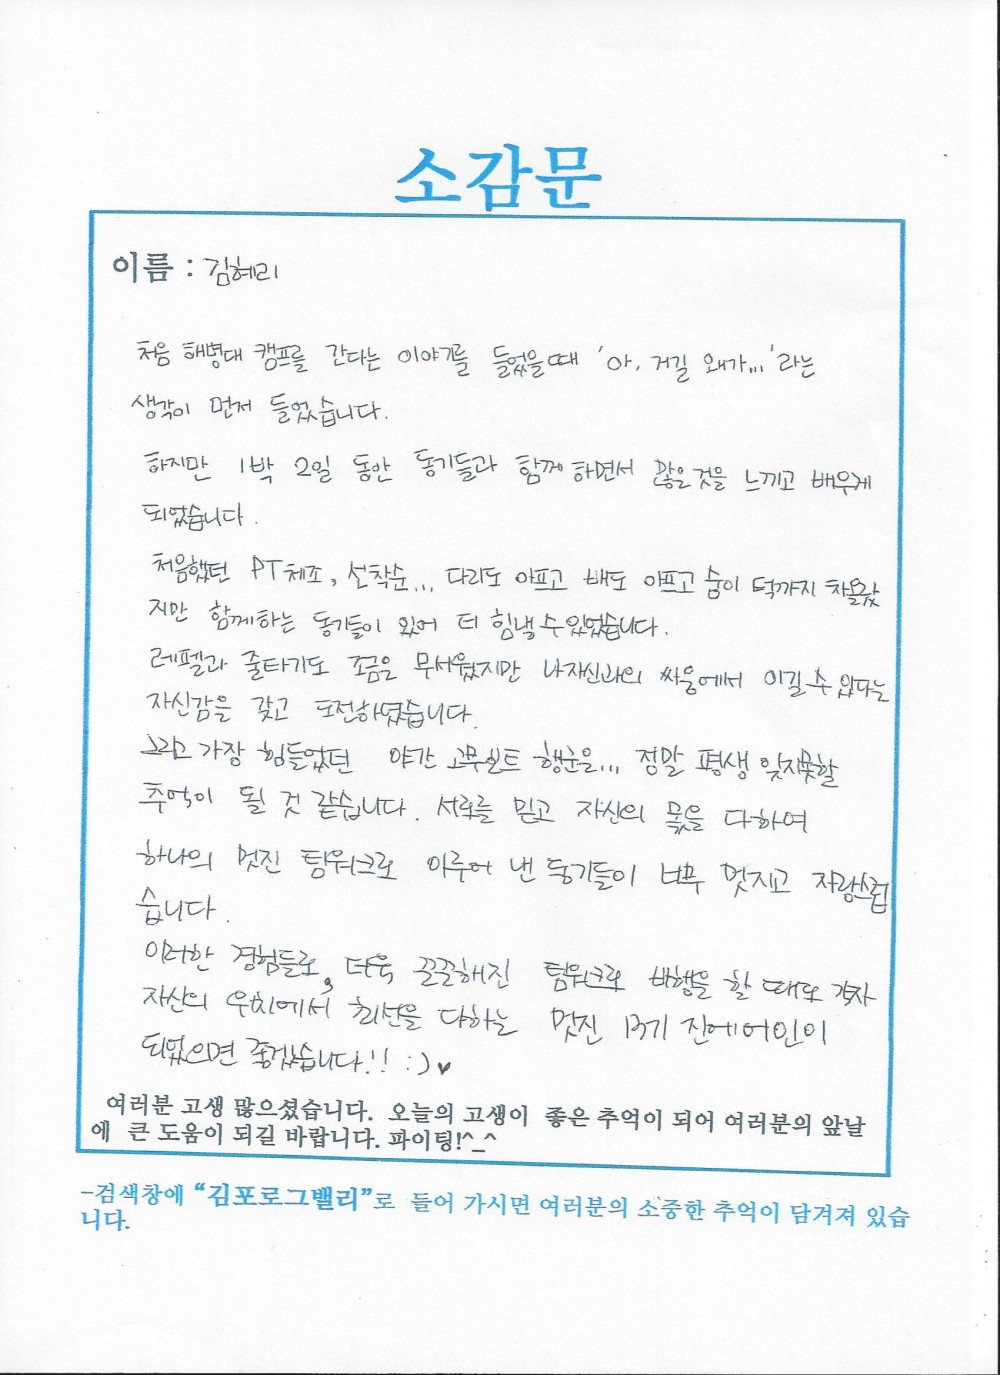 소감문
이름 : 김혜리
처음 해병대 캠프를 간다는 이야기를 들었을때 '아, 거길 왜가...' 라는
생각이 먼저 들었습니다.
하지만 1박 2일 동안 동기들과 함께 하면서 많은것을 느끼고 배우게
되었습니다.
처음했던 PT체조, 선착순... 다리도 아프고 배도 아프고 숨이 턱까지 차올랐
지만 함께하는 동기들이 있어 더 힘낼 수 있었습니다.
레펠과 줄타기도 조금은 무서웠지만 나자신과의 싸움에서 이길 수 있다는
자신감을 갖고 도전하였습니다.
그리고 가장 힘들었던 야간 고무보트 행군은... 정말 평생 잊지못할
추억이 될 것 같습니다. 서로를 믿고 자신의 몫을 다하여
하나의 멋진 팀워크로 이루어 낸 동기들이 너무 멋지고 자랑스럽
습니다.
이러한 경험들로, 더욱 끈끈해진 팀워크로 비행을 할 때도 각자
자신의 위치에서 최선을 다하는 멋진 13기 진에어인이
되었으면 좋겠습니다!! :) ♥
여러분 고생 많으셨습니다. 오늘의 고생이 좋은 추억이 되어 여러분의 앞날
에 큰 도움이 되길 바랍니다. 파이팅!^_^
-검색창에 "김포로그밸리"로 들어 가시면 여러분의 소중한 추억이 담겨져 있습
니다.